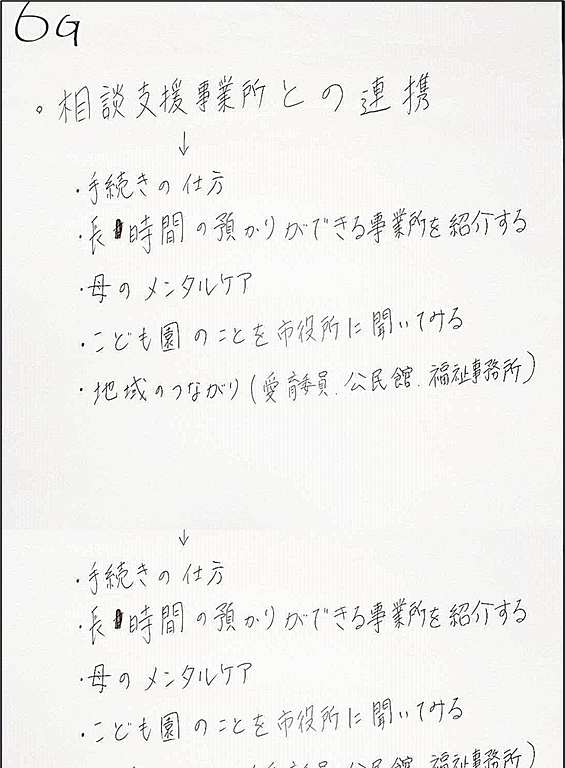 6G
。相談支援事業所との連携
↓
・手続きの仕方
・長時間の預かりができる事業所を紹介する
・母のメンタルケア
・こども園のことを市役所に聞いてみる
・地域のつながり(愛育委員、公民館、福祉事務所)
↓
・手続きの仕方
・長時間の預かりができる事業所を紹介する
・母のメンタルケア
・こども園のことを市役所に聞いてみる
(愛育委員、公民館、福祉事務所)